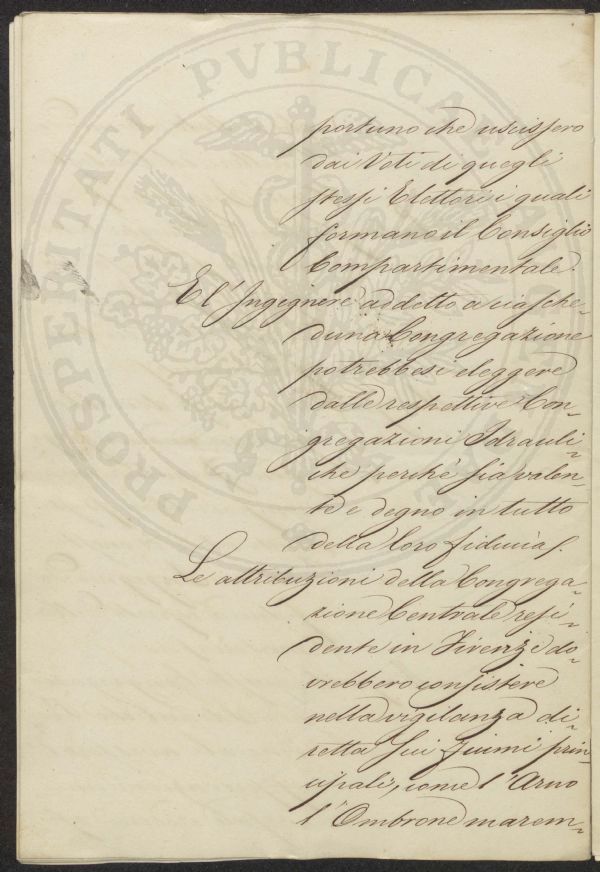 PROSPERITATI PVBLICAE
portuno che uscissero
dai Voti di quegli
stessi Elettori i quali
formano il Consiglio
Compartimentale.
E l'Ingegnere addetto a ciasche-
duna Congregazione
potrebbesi eleggere
dalle respettive Con-
gregazioni Idrauli-
che perchè sia valen-
te e degno in tutto
della loro fiducia.
Le attribuzioni della Congrega-
zione Centrale resi-
dente in Firenze do-
vrebbero consistere
nella vigilanza di-
retta sui fiumi prin-
cipali, come l'Arno
l'Ombrone marem-